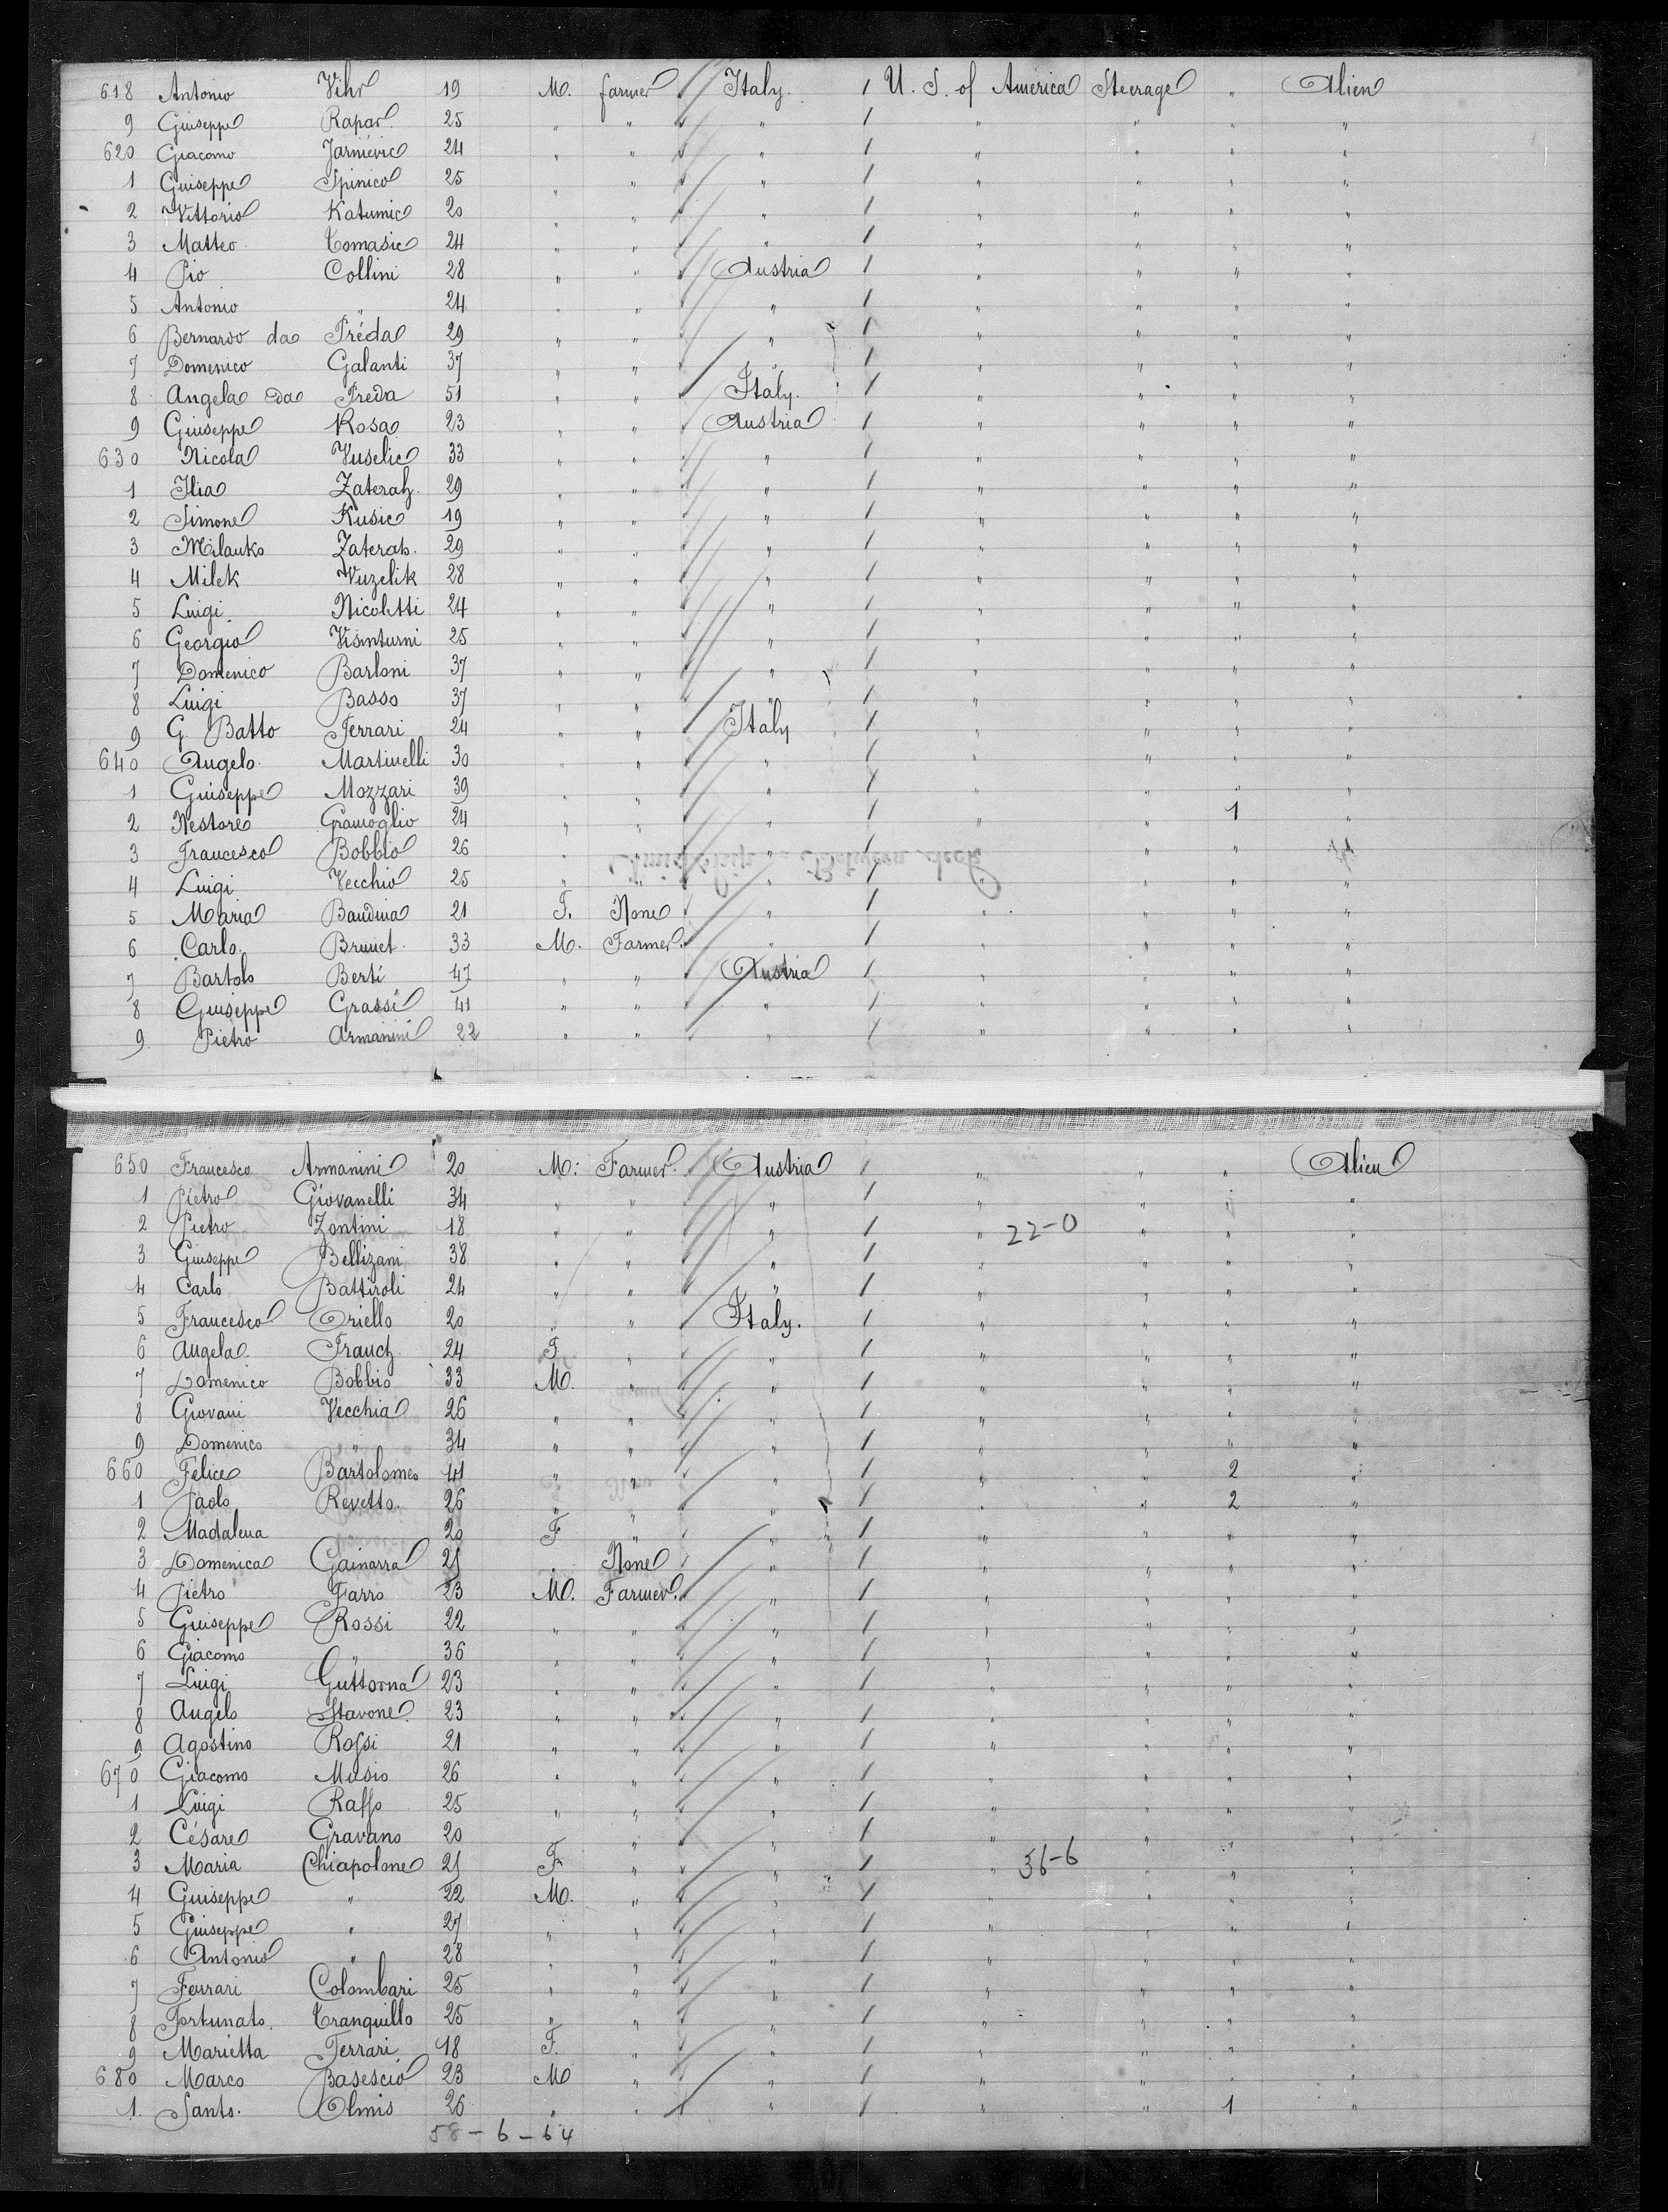 618 Antonio Vihr 19 M. farmer Italy. 1 U. S. of America Steerage " Alien
9 Giuseppe Rapar 25 " " " 1 " " " "
620 Giacomo Jarnievic 24 " " " 1 " " " "
1 Guiseppe Spinico 25 " " " 1 " " " "
2 Vittorio Katumic 20 " " " 1 " " " "
3 Matteo Tomasic 24 " " " 1 " " " "
4 Pio Collini 28 " " Austria 1 " " " "
5 Antonio " 24 " " " 1 " " " "
6 Bernardo da Préda 29 " " " 1 " " " "
7 Domenico Galanti 37 " " " 1 " " " "
8 Angela da Preda 51 " " Italy. 1 " " " "
9 Giuseppe Rosa 23 " " Austria 1 " " " "
630 Nicola Vuselic 33 " " " 1 " " " "
1 Ilia Zaterah 29 " " " 1 " " " "
2 Simone Kusic 19 " " " 1 " " " "
3 Milanko Zaterah. 29 " " " 1 " " " "
4 Milek Vuzelik 28 " " " 1 " " " "
5 Luigi Nicoletti 24 " " " 1 " " " "
6 Georgio Visinturni 25 " " " 1 " " " "
7 Domenico Barloni 37 " " " 1 " " " "
8 Luigi Basso 37 " " " 1 " " " "
9 G. Batto Ferrari 24 " " Italy 1 " " " "
640 Angelo Martinelli 30 " " " 1 " " " "
1 Guiseppe Mozzari 39 " " " 1 " " " "
2 Nestore Gramoglio 24 " " " 1 " " 1 "
3 Francesco Bobbio 26 " " " 1 " " " "
4 Luigi Vecchio 25 " " " 1 " " " "
5 Maria Baudina 21 F. None " 1 " " " "
6 Carlo Brunet 33 M. Farmer. " 1 " " " "
7 Bartolo Berti 47 " " Austria 1 " " " "
8 Guiseppe Grassi 41 " " " 1 " " " "
9 Pietro Armanini 22 " " " 1 " " " "
650 Francesco Armanini 20 M. Farmer Austria 1 " " " Alien
1 Pietro Giovanelli 34 " " " 1 " " " "
2 Pietro Zontini 18 " " " 1 " 22-0 " " "
3 Guiseppe Bellizani 38 " " " 1 " " " "
4 Carlo Battiroli 24 " " " 1 " " " "
5 Francesco Oriello 20 " " Italy. 1 " " " "
6 Angela Franch 24 F. " " 1 " " " "
7 Domenico Bobbio 33 M. " " 1 " " " "
8 Giovani Vecchia 26 " " " 1 " " " "
9 Domenico " 34 " " " 1 " " " "
660 Felice Bartolomeo 41 " " " 1 " " 2 "
1 Paolo Revetto. 26 " " " 1 " " 2 "
2 Madalena 20 F " " 1 " " " "
3 Domenica Gainarra 25 " None " 1 " " " "
4 Pietro Farro 23 M. Farmer. " 1 " " " "
5 Guiseppe Rossi 22 " " " 1 " " " "
6 Giacomo " 36 " " " 1 " " " "
7 Luigi Guttorna 23 " " " 1 " " " "
8 Angelo Stavone 23 " " " 1 " " " "
9 Agostino Rossi 21 " " " 1 " " " "
670 Giacomo Musio 26 " " " 1 " " " "
1 Luigi Raffo 25 " " " 1 " " " "
2 Césare Gravano 20 " " " 1 " " " "
3 Maria Chiapolone 25 F. " " 1 " 56-6 " " "
4 Guiseppe " 22 M. " " 1 " " " "
5 Giuseppe " 27 " " " 1 " " " "
6 Antonio " 28 " " " 1 " " " "
7 Ferrari Colombari 25 " " " 1 " " " "
8 Fortunato. Tranquillo 25 " " " 1 " " " "
9 Marietta Ferrari 18 F. " " 1 " " " "
680 Marco Basescio 23 M " " 1 " " " "
1. Santo. Olmis 26 " " " 1 " " 1 "
58-6-64